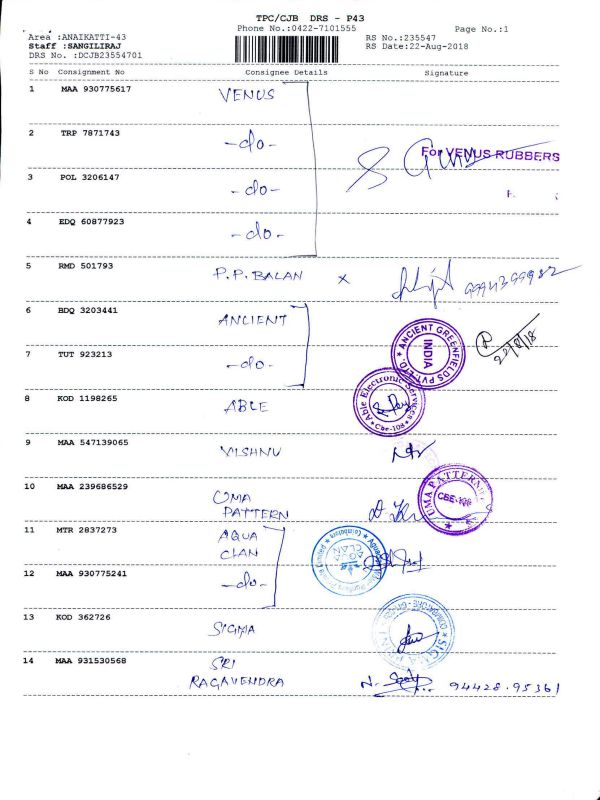 TPC/CJB DRS - P43
Phone No.:0422-7101555
Page No.:1
Area :ANAIKATTI-43
RS No.:235547
Staff :SANGILIRAJ
RS Date:22-Aug-2018
DRS No. :DCJB23554701
S No Consignment No Consignee Details Signature
1 MAA 930775617 VENUS
2 TRP 7871743 -do-
For VENUS RUBBERS
3 POL 3206147 -do-
4 EDQ 60877923 -do-
5 RMD 501793 P.P. BALAN x 9994399982
6 BDQ 3203441 ANCIENT
ANCIENT GREENFIELDS PVT. LTD. INDIA
22/8/18
7 TUT 923213 -do-
8 KOD 1198265 ABLE
Able Electronic Services Cbe-108
9 MAA 547139065 VISHNU
10 MAA 239686529 UMA
PATTERN
UMA PATTERN
11 MTR 2837273 AQUA
CLAN
12 MAA 930775241 -do-
13 KOD 362726 SIGMA
SIGMA
14 MAA 931530568 SRI
RAGAVENDRA 94428.95361